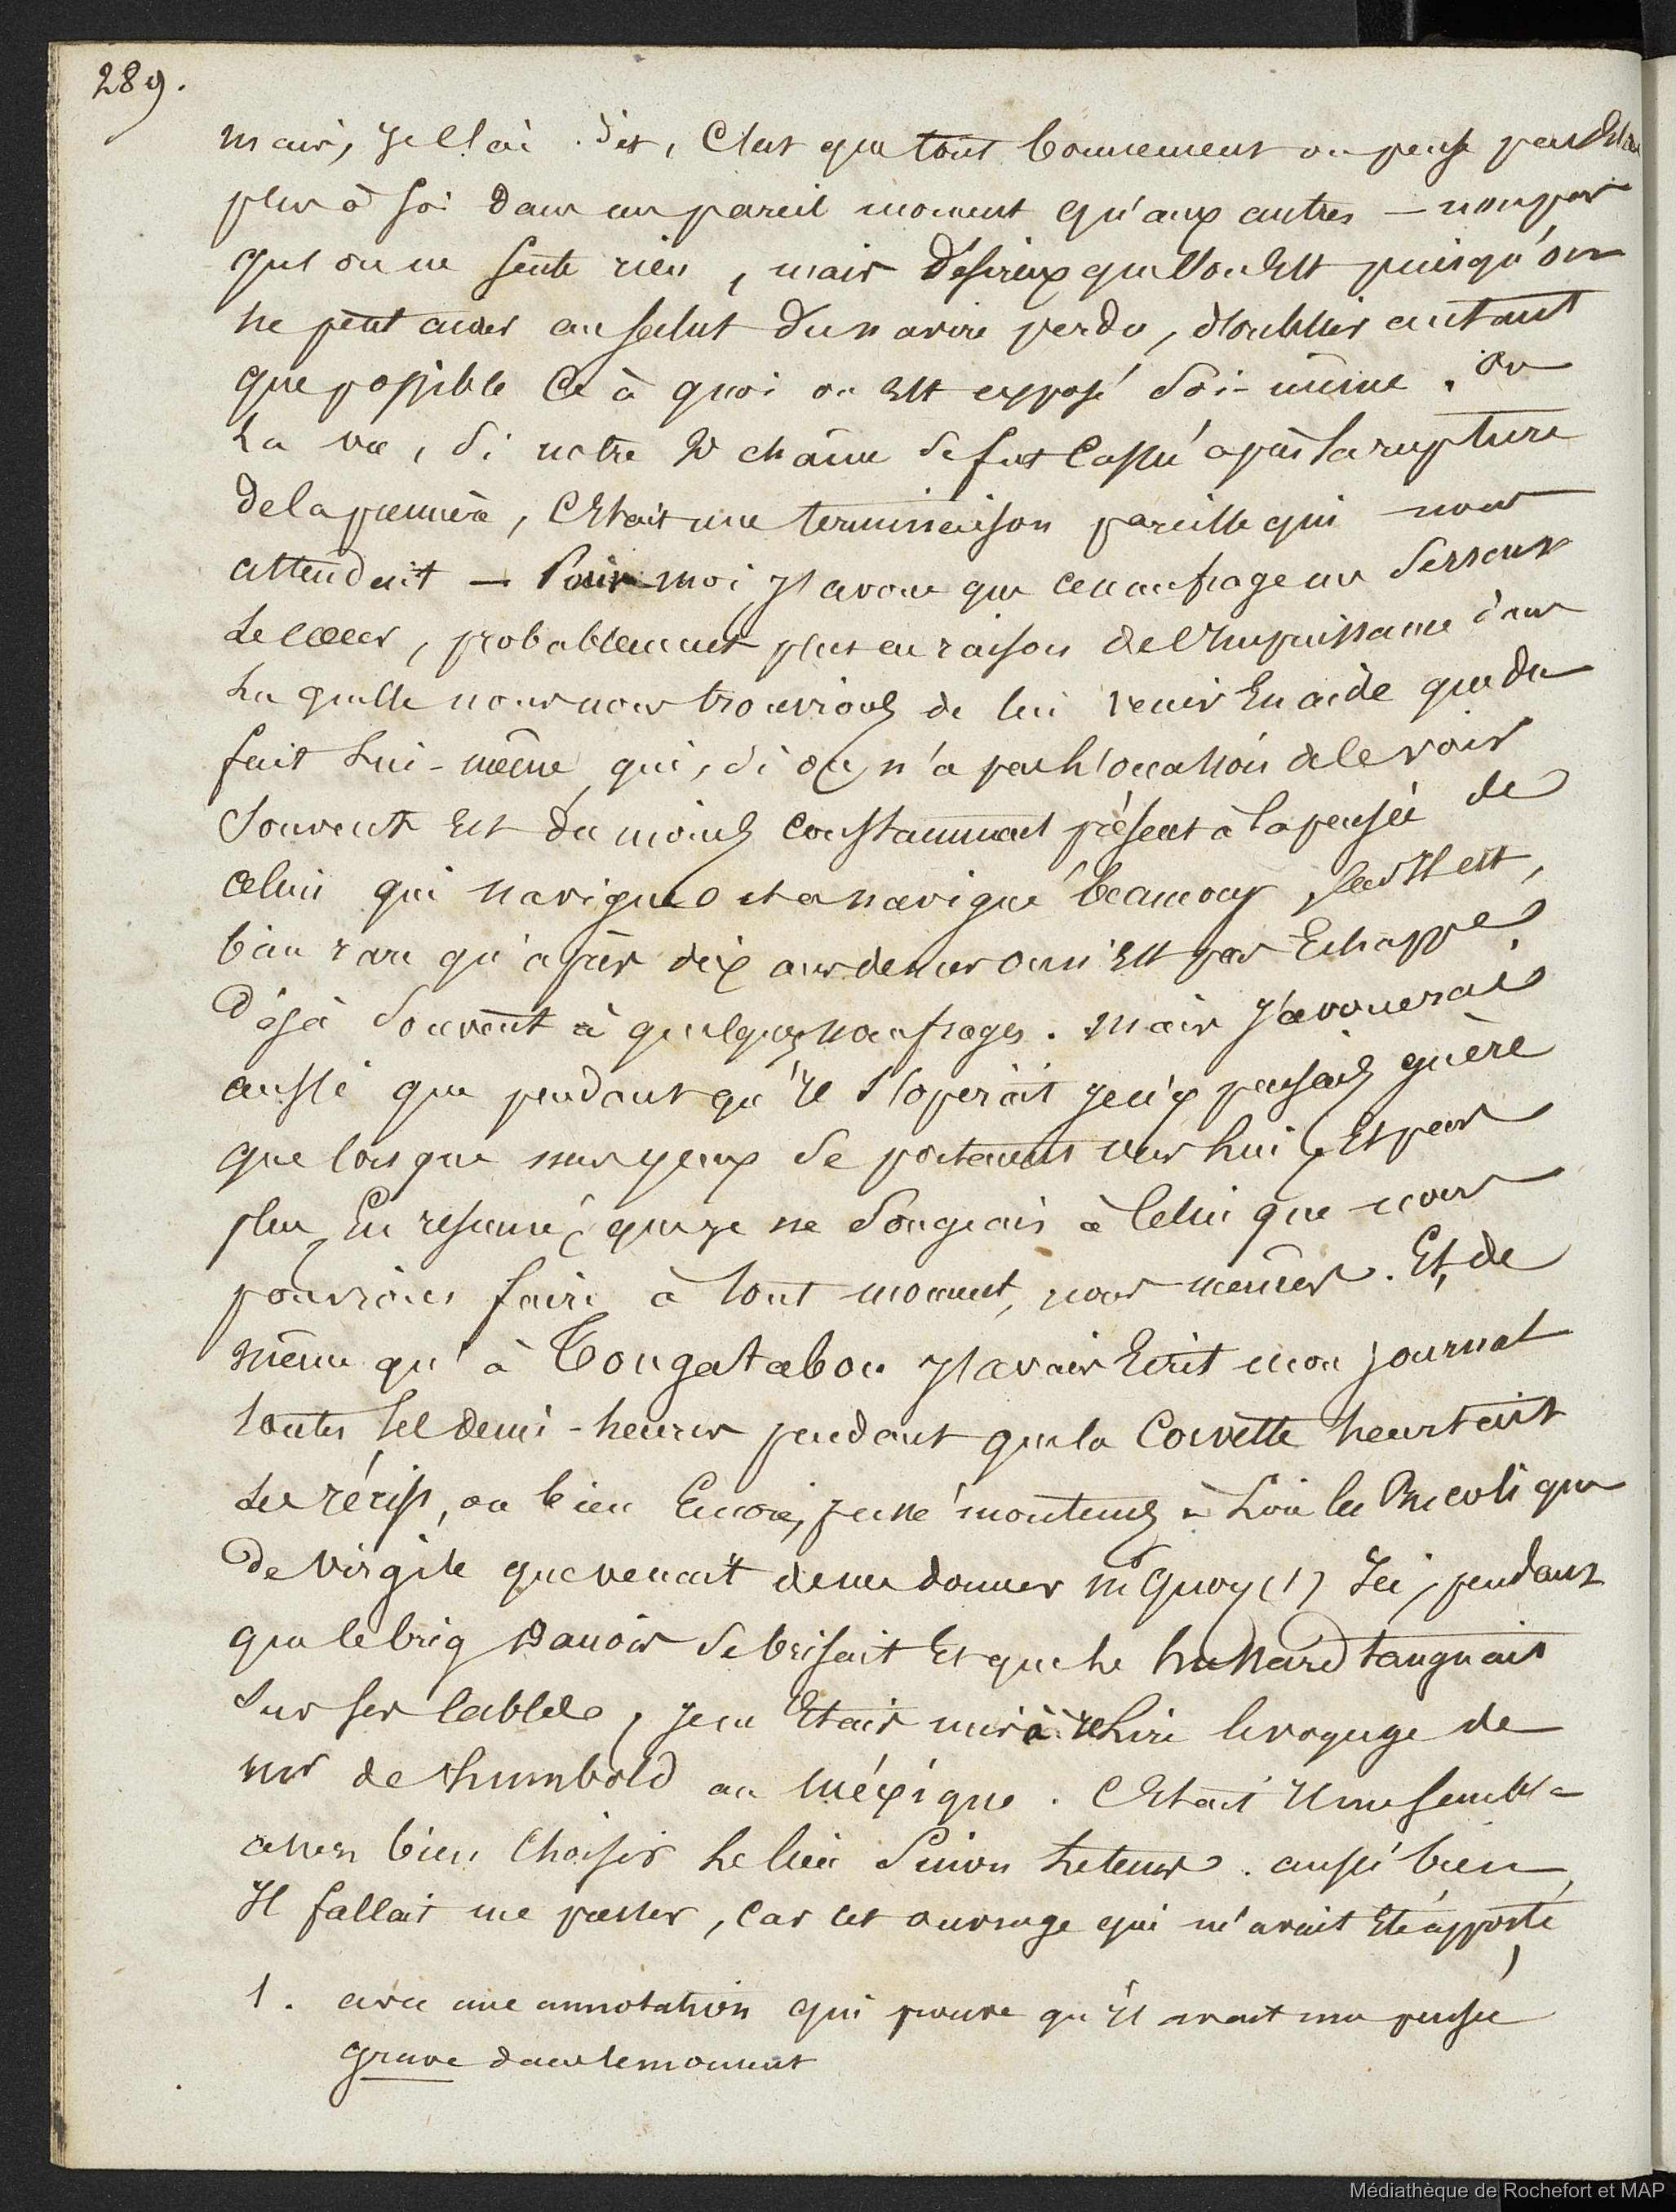 289.
mais, je l'ai dit, C'est que tout bonnement on pense peut être
plus à soi dans un pareil moment qu'aux autres — non pas
que on ne sente rien, mais désireux que l'on est puisqu'on
ne peut aider au salut d'un navire perdu, d'oublier autant
que possible Ce à quoi on est exposé soi-même. On
l'a vu, Si notre 2e chaîne se fut Cassée après la rupture
de la première, C'était une terminaison pareille qui nous
attendait — Pour moi j'avoue que ce naufrage me serrait
le cœur, probablement plus en raison de l'Impuissance dans
laquelle nous nous trouvions de lui venir En aide que du
fait lui-même qui, si on n'a pas l'occasion de le voir
Souvent Est du moins Constamment présent à la pensée de
celui qui navigue et a navigué beaucoup, car Il est,
bien rare qu'après dix ans de mer on n'Est pas Echappé
Déjà Souvent à quelques naufrages. Mais J'avouerai
aussi que pendant qu'Il s'opérait je n'y pensais guère
que lorsque mes yeux se portaient vers lui, Et pas
plus En résumé, que je ne Songeais à Celui que nous
pouvions faire à tout moment, nous mêmes. Et, de
même qu'à Tongatabou J'avais Ecrit mon journal
toutes les demi-heures pendant que la Corvette heurtait
les récifs, ou bien Encore, je me montais à Lire les Bucoliques
De Virgile que venait de me donner Mr Quoy (1) Ici, pendant
que le brig Danois se brisait Et que le hussard tanguait
Sur ses Cables, je m'Etais mis à relire le voyage de
Mr de Humbold au Méxique. C'était Il me semble
assez bien Choisir le lieu Sinon le tems. aussi bien,
Il fallait me presser, Car cet ouvrage qui m'avait Eté apporté,
1. avec une annotation qui prouve qu'Il avait ma pensée
grave dans le moment
Médiathèque de Rochefort et MAP